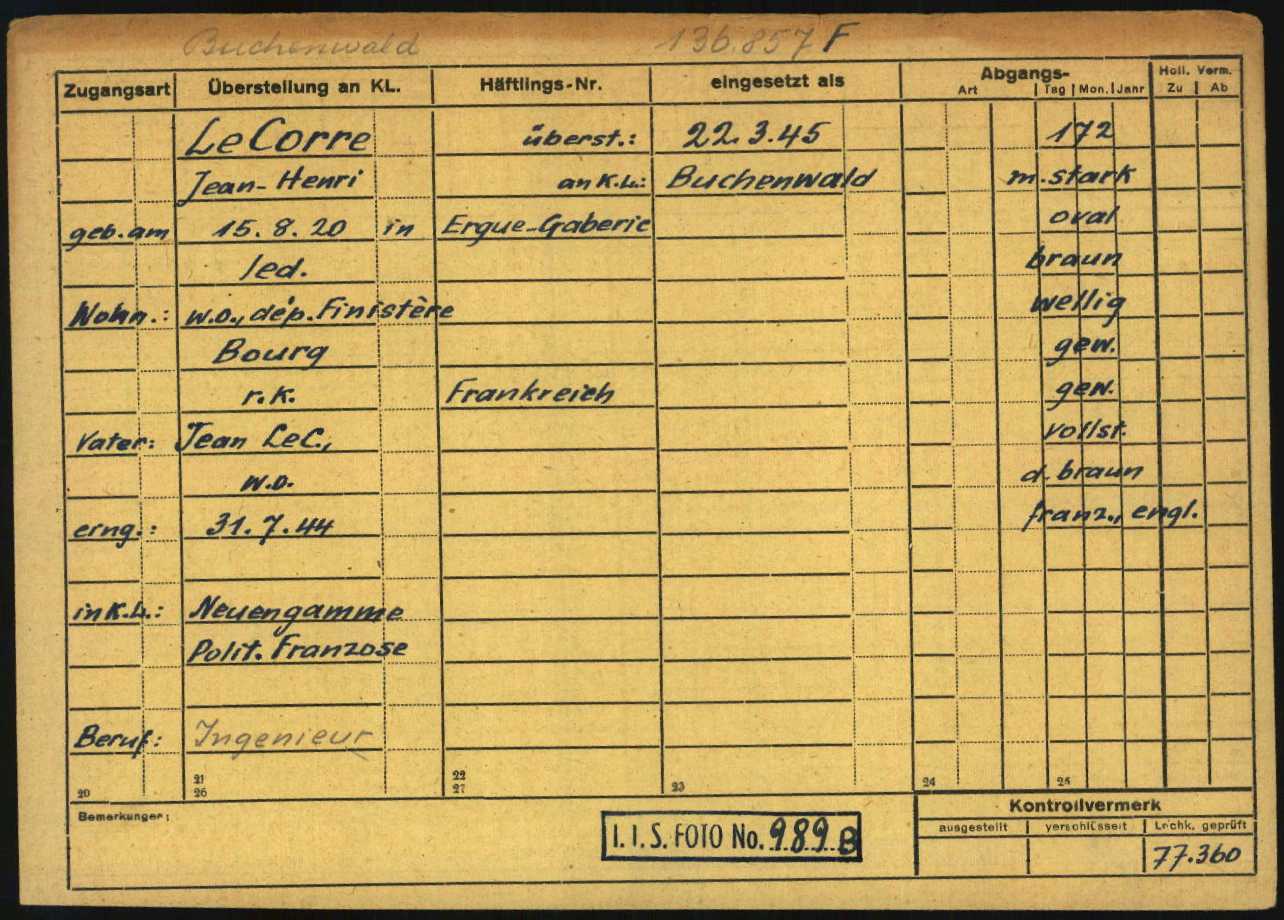 Buchenwald 136.857 F
Zugangsart Überstellung an KL. Häftlings-Nr. eingesetzt als Abgangs- Holl. Verm.
Art Tag Mon. Jahr Zu Ab
Le Corre überst.: 22.3.45 172
Jean-Henri an K.L.: Buchenwald m.stark
geb.am 15.8.20 in Ergue-Gaberic oval
led. braun
Wohn.: w.o., dép. Finistère wellig
Bourg gew.
r.k. Frankreich gew.
Vater: Jean LeC., vollst.
w.o. d.braun
erng.: 31.7.44 franz., engl.
in K.L.: Neuengamme
Polit. Franzose
Beruf: Ingenieur
20 21 26 22 27 23 24 25
Bemerkungen:
I.I.S. FOTO No. 989 B
Kontrollvermerk
ausgestellt verschlüsselt Lochk. geprüft
77.360